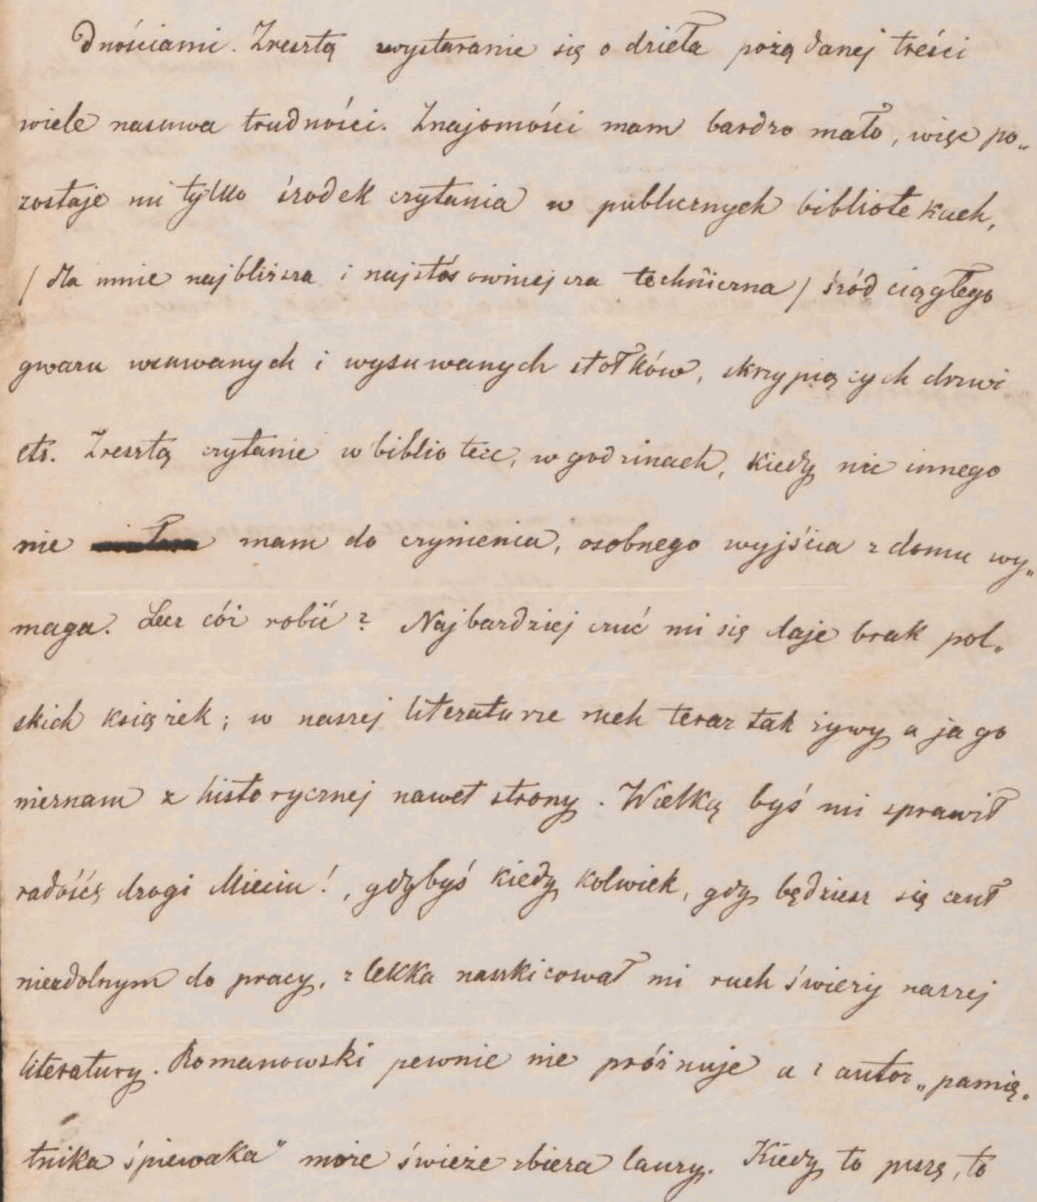 dnościami. Zresztą wystaranie się o dzieła pożądanej treści
wiele nasuwa trudności. Znajomości mam bardzo mało, więc po„
zostaje mi tylko środek czytania w publicznych bibliotekach,
/dla mnie najbliższa i najstósowniejsza techniczna/ śród ciągłego
gwaru wsuwanych i wysuwanych stołków, skrzypiących drzwi
etc. Zresztą czytanie w bibliotece, w godzinach, kiedy nic innego
nie mam do czynienia, osobnego wyjścia z domu wy„
maga. Lecz cóż robić? Najbardziej czuć mi się daje brak pol„
skich książek; w naszej literaturze ruch teraz tak żywy a ja go
nieznam z historycznej nawet strony. Wielką byś mi sprawił
radość drogi Mieciu!, gdybyś kiedykolwiek, gdy będziesz się czuł
niezdolnym do pracy, z lekka naszkicował mi ruch świeży naszej
literatury. Romanowski pewnie nie próżnuje a i autor „pamię„
tnika śpiewaka" może świeże zbiera laury. Kiedy to piszę, to